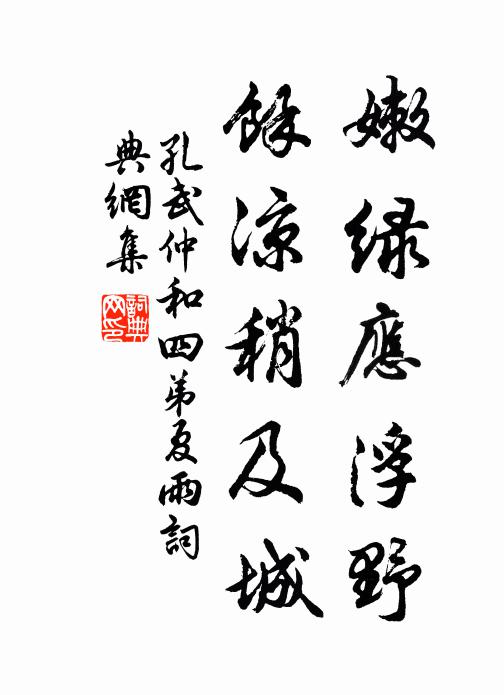 嫩緑應浮野
餘涼稍及城
孔武仲和四弟夏雨詞
典網集
詞典网印